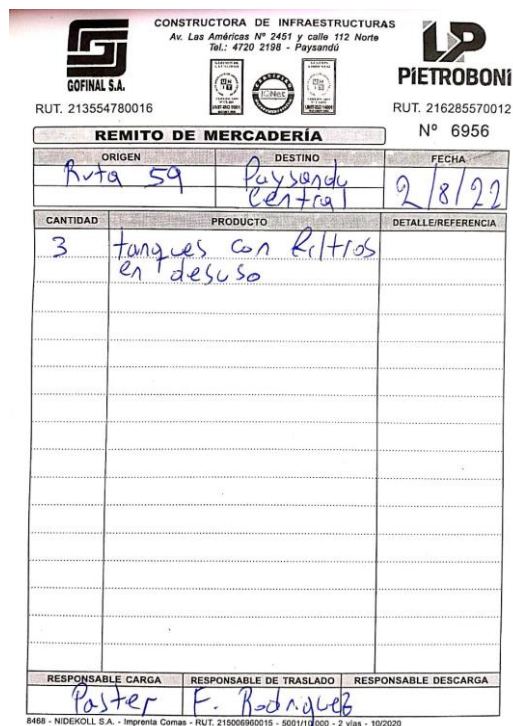 CONSTRUCTORA DE INFRAESTRUCTURAS
Av. Las Américas Nº 2451 y calle 112 Norte
Tel.: 4720 2198 - Paysandú
GOFINAL S.A.
LP
PiETROBONi
IQNet
RUT. 213554780016
RUT. 216285570012
REMITO DE MERCADERÍA
Nº 6956
ORIGEN DESTINO FECHA
Ruta 59 Paysandu 2/8/22
Central
CANTIDAD PRODUCTO DETALLE/REFERENCIA
3 tanques con filtros
en desuso
RESPONSABLE CARGA RESPONSABLE DE TRASLADO RESPONSABLE DESCARGA
Paster F. Rodriguez
8468 - NIDEKOLL S.A. - Imprenta Comas - RUT. 215006960015 - 5001/10.000 - 2 vías - 10/2020